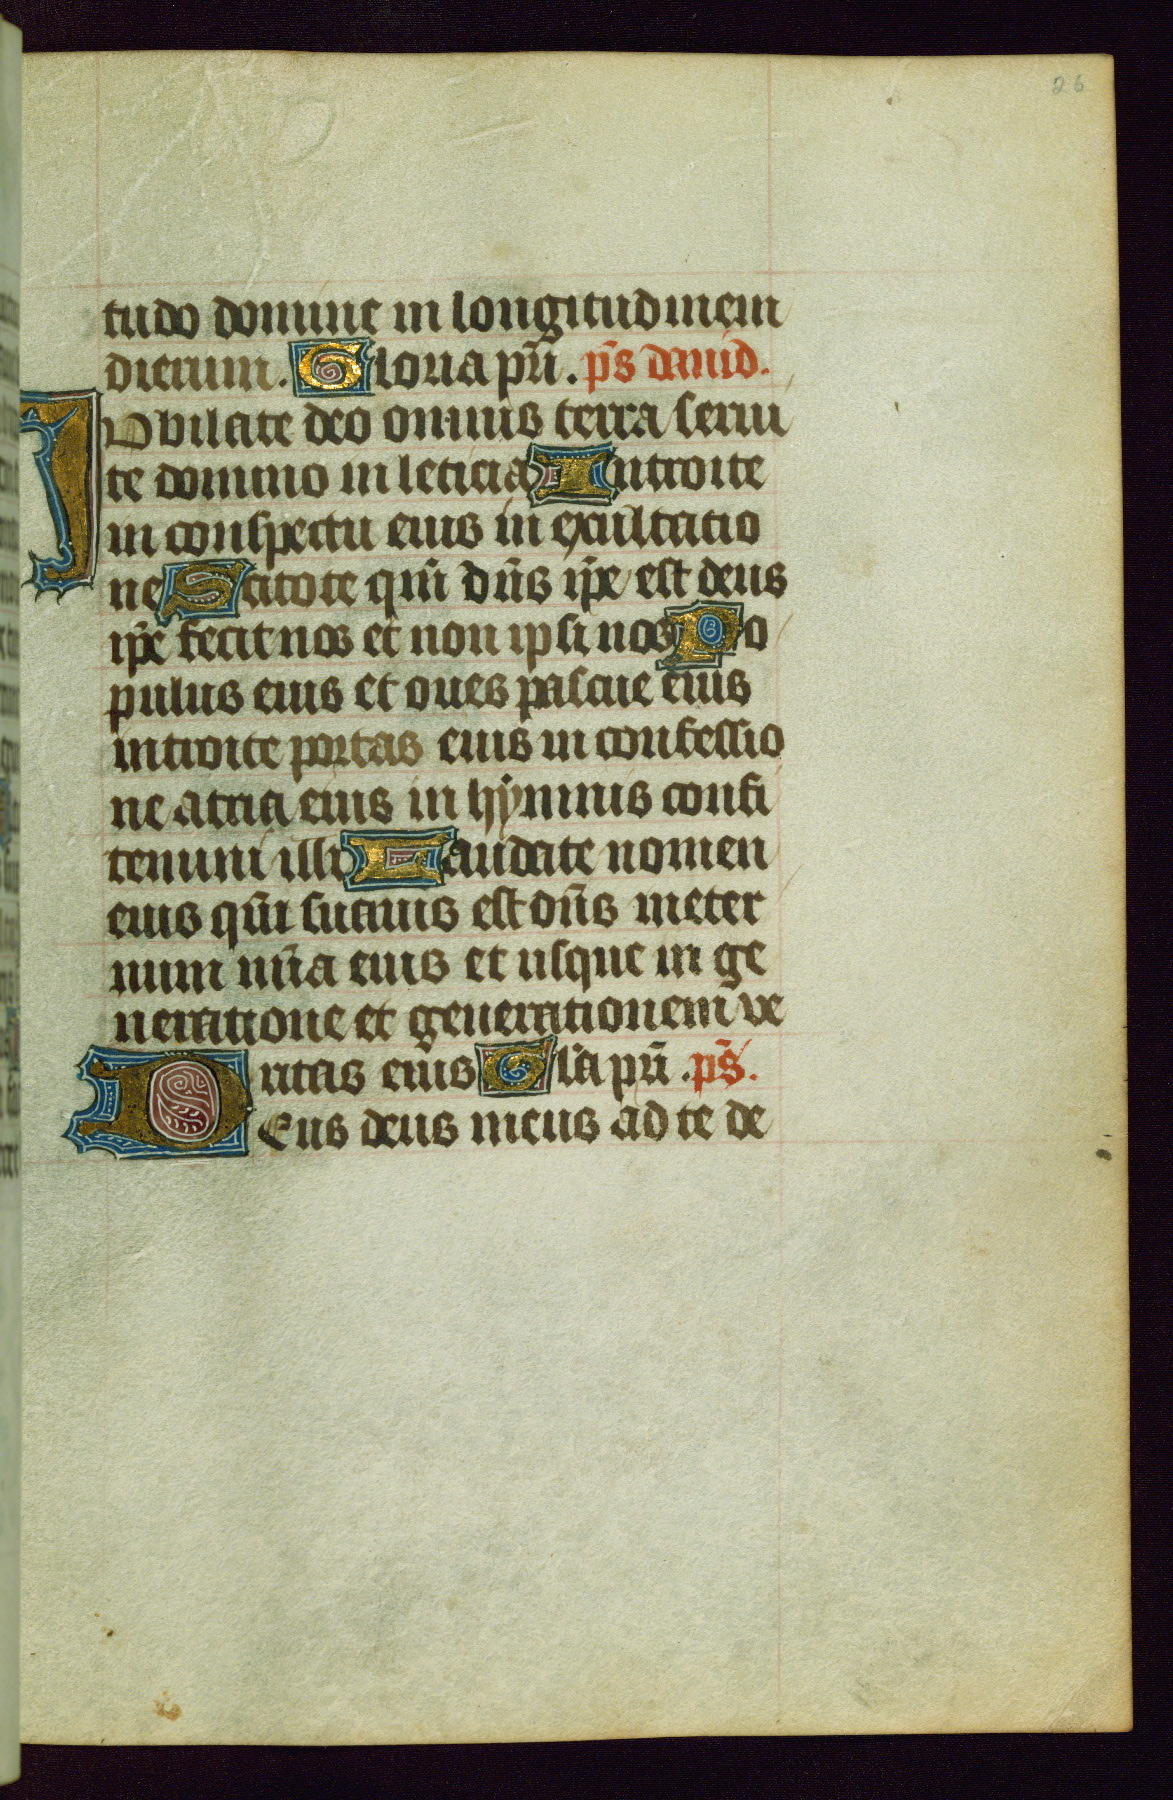 26
tudo domine in longitudinem
dierum. Gloria pri. ps dauid.
IObilate deo omnis terra serui
te domino in leticia Introite
in conspectu eius in exultatio
ne Scitote qm dns ipe est deus
ipe fecit nos et non ipsi nos Po
pulus eius et oues pascue eius
introite portas eius in confessio
ne atria eius in hymnis confi
temini illi Laudate nomen
eius qm suauis est dns in eter
num mia eius et usque in ge
neratione et generationem ve
ritas eius Gla pri. ps.
DEus deus meus ad te de